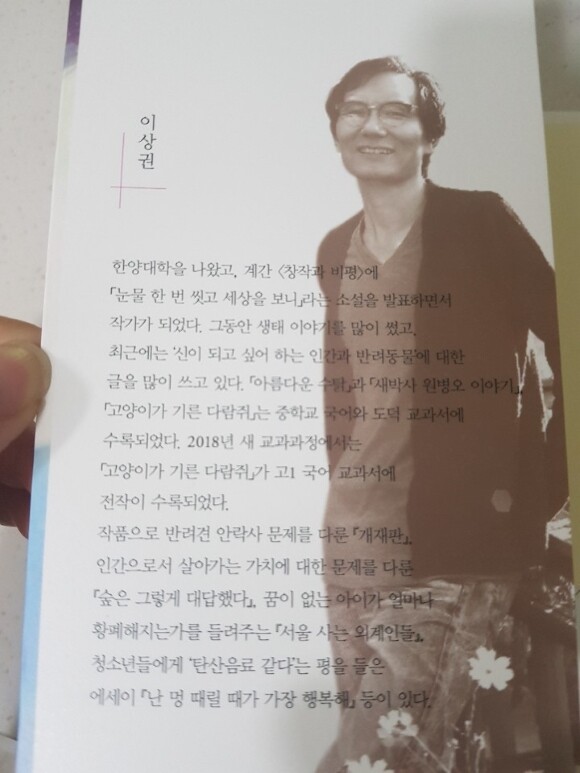 이상권
한양대학을 나왔고, 계간 〈창작과 비평〉에
「눈물 한 번 씻고 세상을 보니」라는 소설을 발표하면서
작가가 되었다. 그동안 생태 이야기를 많이 썼고,
최근에는 '신이 되고 싶어 하는 인간과 반려동물'에 대한
글을 많이 쓰고 있다. 「아름다운 수탉」과 「새박사 원병오 이야기」,
「고양이가 기른 다람쥐」는 중학교 국어와 도덕 교과서에
수록되었다. 2018년 새 교과과정에서는
「고양이가 기른 다람쥐」가 고1 국어 교과서에
전작이 수록되었다.
작품으로 반려견 안락사 문제를 다룬 『개재판』,
인간으로서 살아가는 가치에 대한 문제를 다룬
『숲은 그렇게 대답했다』, 꿈이 없는 아이가 얼마나
황폐해지는가를 들려주는 『서울 사는 외계인들』,
청소년들에게 '탄산음료 같다'는 평을 들은
에세이 『난 멍 때릴 때가 가장 행복해』 등이 있다.